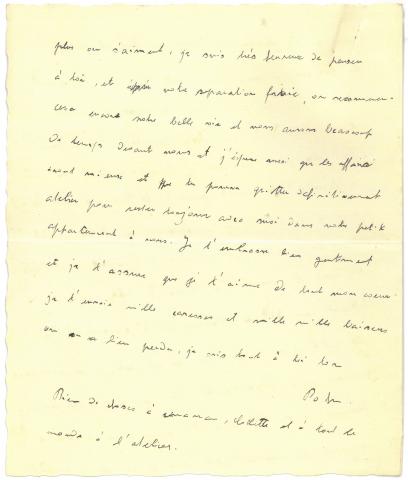 plus on s'aiment, je suis très heureux de penser
à toi, et notre séparation finie, on recommen-
cera encore notre belle vie et nous aurons beaucoup
de temps devant nous et j'espère aussi que les affaires
iront mieux et que tu pourras quitter définitivement
atelier pour rester toujours avec moi dans notre petit
appartement à nous. Je t'embrasse bien gentiment
et je t'assure que je t'aime de tout mon coeur
je t'envoie mille caresses et mille mille baisers
bien perdu, je suis tout à toi ton
Rien de choses à maman, et à tout le
monde à l'atelier.